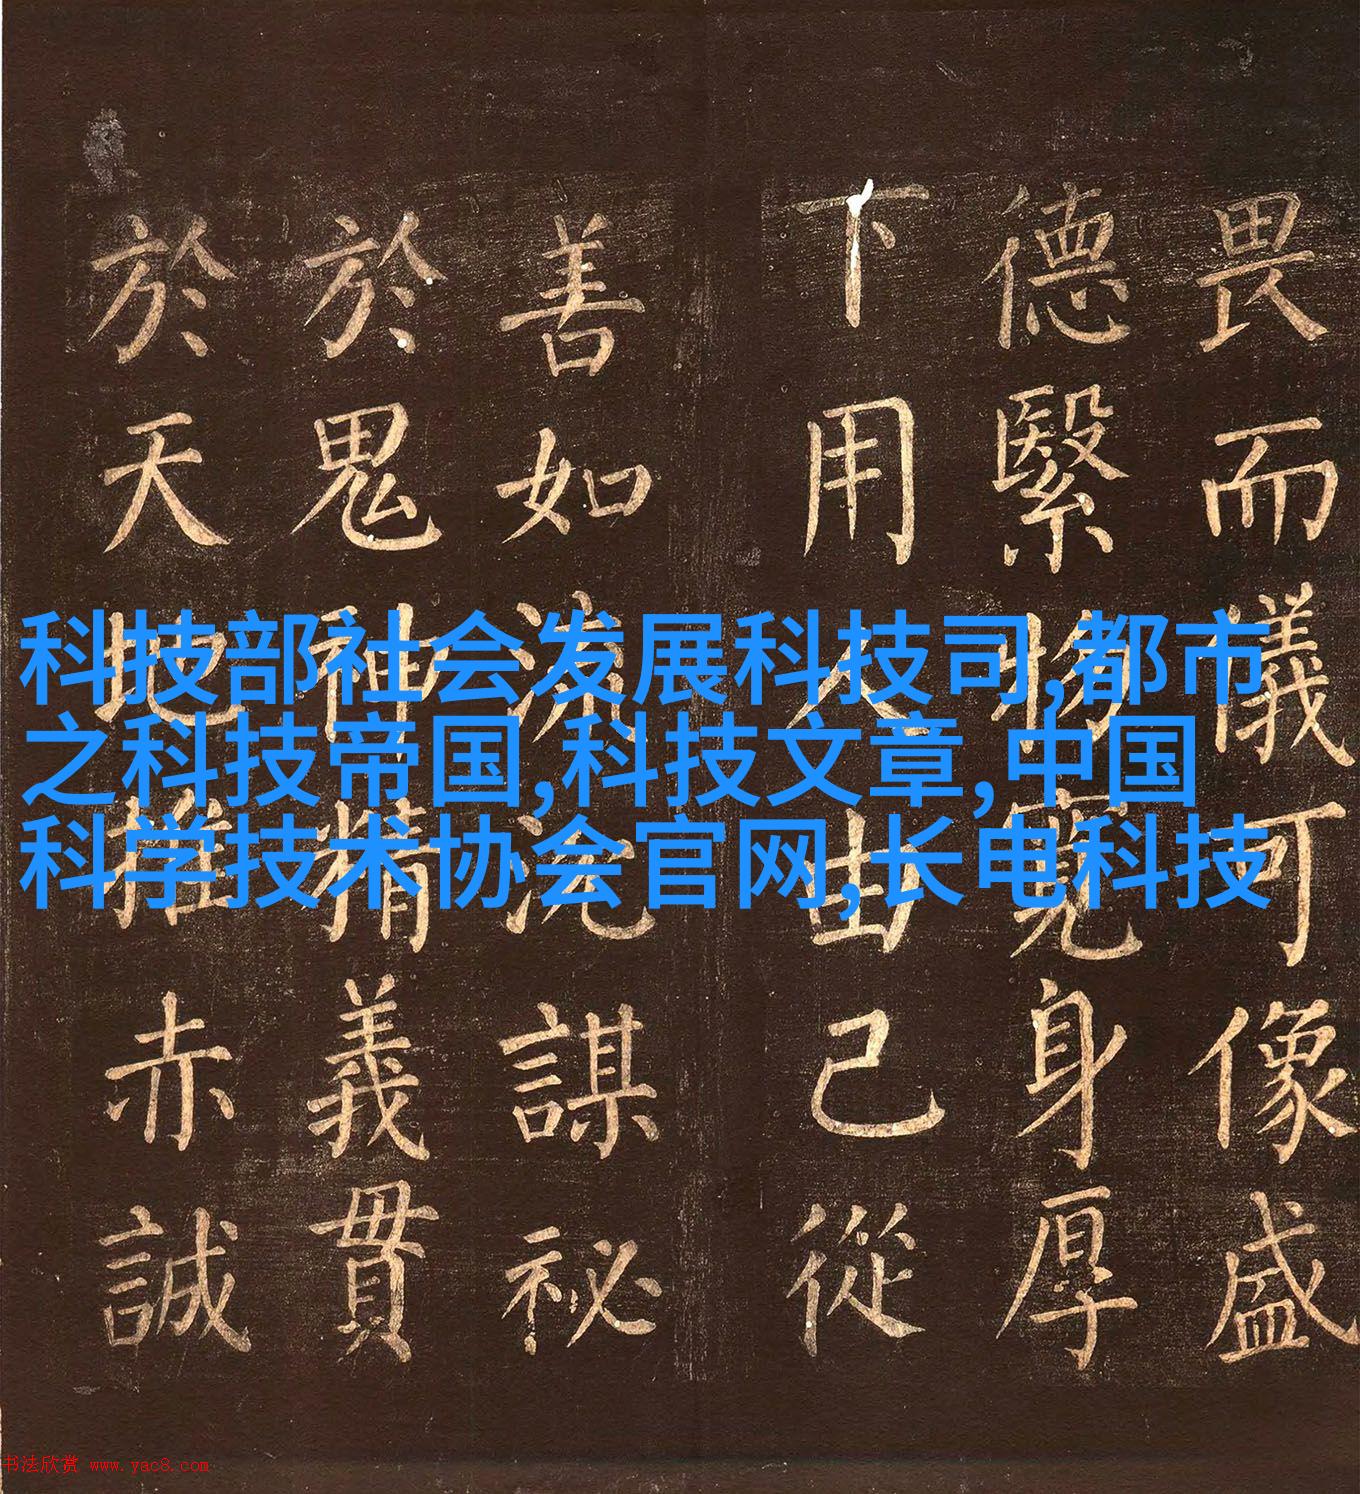 畏而儀可像盛
德繄物寬身厚
下用人由己從
善如流沈謀祕
於鬼神精義貫
於天地推赤誠
科技部社会发展科技司,都市
之科技帝国,科技文章,中国
科学技术协会官网,长电科技
书法欣赏 www.yac8.com